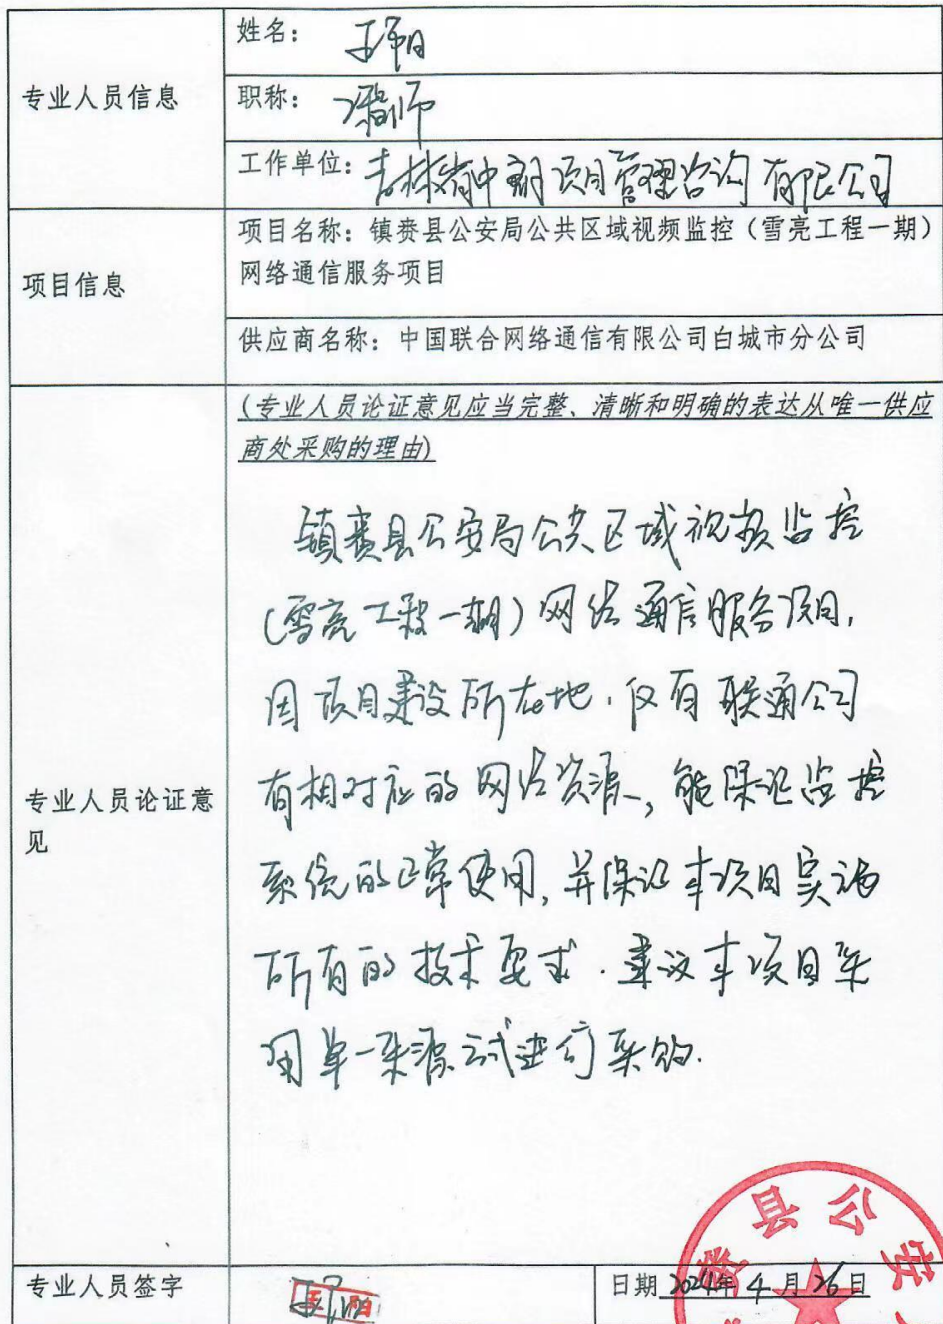 专业人员信息
姓名：
职称：工程师
工作单位：吉林省中嗣项目管理咨询有限公司
项目信息
项目名称：镇赉县公安局公共区域视频监控（雪亮工程一期）
网络通信服务项目
供应商名称：中国联合网络通信有限公司白城市分公司
专业人员论证意
见
(专业人员论证意见应当完整、清晰和明确的表达从唯一供应
商处采购的理由)
镇赉县公安局公共区域视频监控
(雪亮工程一期)网络通信服务项目,
因项目建设所在地.仅有联通公司
有相对应的网络资源,能保证监控
系统的正常使用,并保证本项目实施
所有的技术要求.建议本项目采
用单一来源方式进行采购.
专业人员签字
日期 2024年4月26日
赉县公安